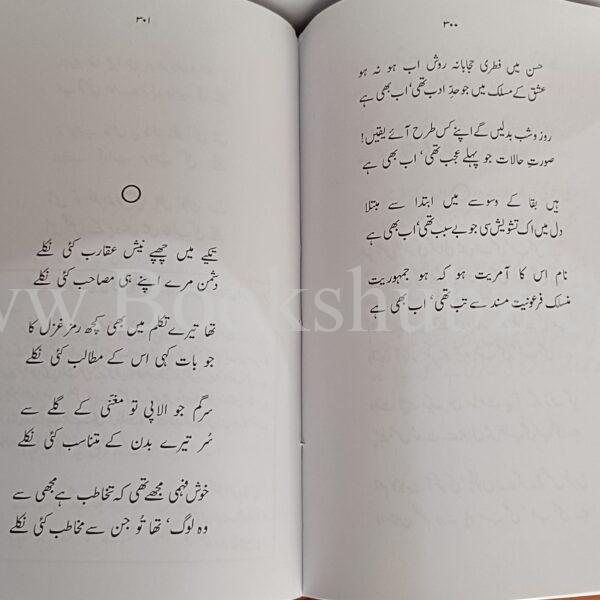 ۳۰۰
حسن میں فطری حجابانہ روش اب ہو نہ ہو
عشق کے مسلک میں جو حدِ ادب تھی، اب بھی ہے
روز و شب بدلیں گے اپنے کس طرح آئے یقیں!
صورتِ حالات جو پہلے عجب تھی، اب بھی ہے
ہیں بقا کے وسوسے میں ابتدا سے مبتلا
دل میں اک تشویش سی جو بے سبب تھی، اب بھی ہے
نام اس کا آمریت ہو کہ ہو جمہوریت
منسلک فرعونیت مسند سے تب تھی، اب بھی ہے
۳۰۱
تکیے میں چھپے نیش عقارب کئی نکلے
دشمن مرے اپنے ہی مصاحب کئی نکلے
تھا تیرے تکلم میں بھی کچھ رمز غزل کا
جو بات کہی اس کے مطالب کئی نکلے
سرگم جو الاپی تو مغنّی کے گلے سے
سُر تیرے بدن کے متناسب کئی نکلے
خوش فہمی مجھے تھی کہ تخاطب ہے مجھی سے
وہ لوگ، تھا تُو جن سے مخاطب کئی نکلے
www.Bookshu